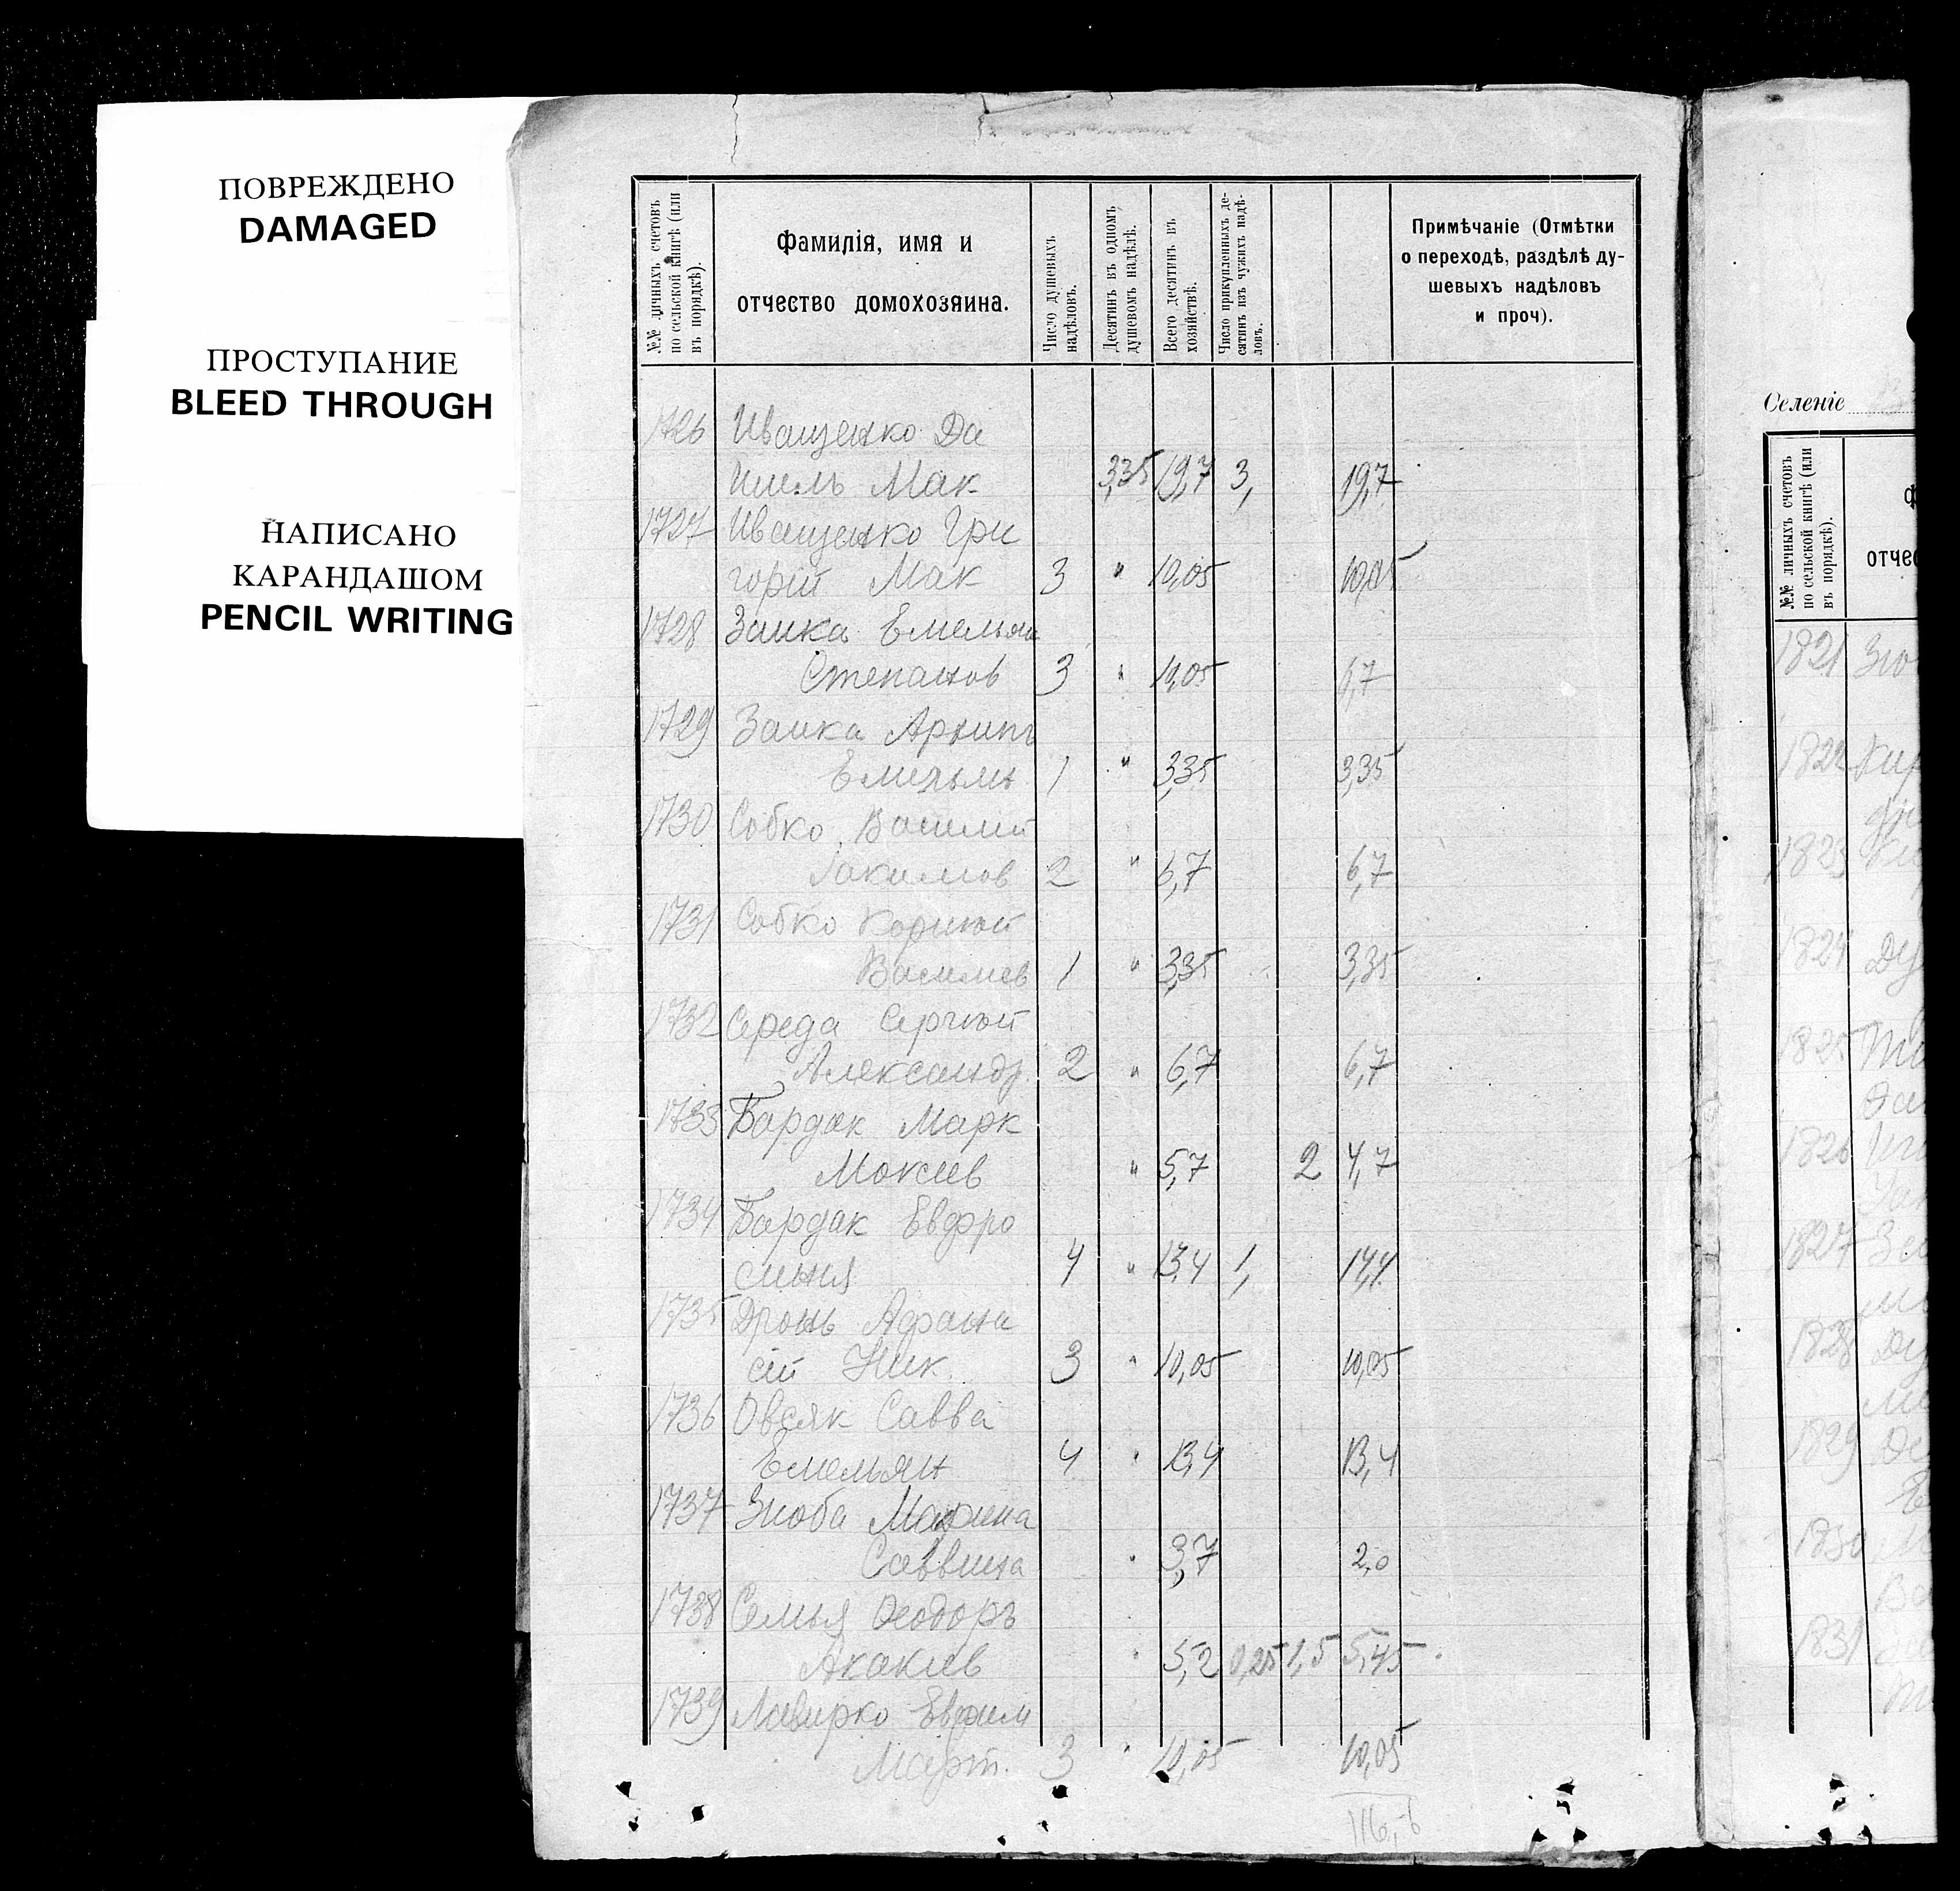 ПОВРЕЖДЕНО
DAMAGED
ПРОСТУПАНИЕ
BLEED THROUGH
НАПИСАНО
КАРАНДАШОМ
PENCIL WRITING
№№ личныхъ счетовъ
по сельской книгѣ (или
въ порядкѣ).
Фамилія, имя и
отчество домохозяина.
Число душевыхъ
надѣловъ.
Десятинъ въ одномъ
душевомъ надѣлѣ.
Всего десятинъ въ
хозяйствѣ.
Число прикупленныхъ де-
сятинъ изъ чужихъ надѣ-
ловъ.
Примѣчаніе (Отмѣтки
о переходѣ, раздѣлѣ ду-
шевыхъ надѣловъ
и проч).
1726 Иващенко Да
Мак 3,35 19,7 3, 19,7
1727 Иващенко Гри
горій Мак 3 " 10,05 10,05
1728 Заика Емельян
Степанов 3 " 10,05 6,7
1729 Заика Архипъ
Емельян 1 " 3,35 3,35
1730 Собко Василий
Іакимов 2 " 6,7 6,7
1731 Собко Корней
Василиев 1 " 3,35 3,35
1732 Середа Сергѣй
Александр. 2 " 6,7 6,7
1733 Бардак Марк
Мокиев " 5,7 2 4,7
1734 Бардак Евфро
синья 4 " 13,4 1, 14,4
1735 Дронь Афана
сій Ник. 3 " 10,05 10,05
1736 Овсяк Савва
Емельян 4 " 13,4 13,4
1737 Зюба Марина
Саввина " 3,7 2,0
1738 Семья Ѳеодоръ
Акакиев " 5,2 0,25 1,5 5,45
1739 Лавирко Евфим
Март. 3 " 10,05 10,05
Селеніе
№№ личныхъ счетовъ
по сельской книгѣ (или
въ порядкѣ).
Ф
отчес
1821
1822
1823
1824
1825
1826
1827
1828
1829
1830
1831